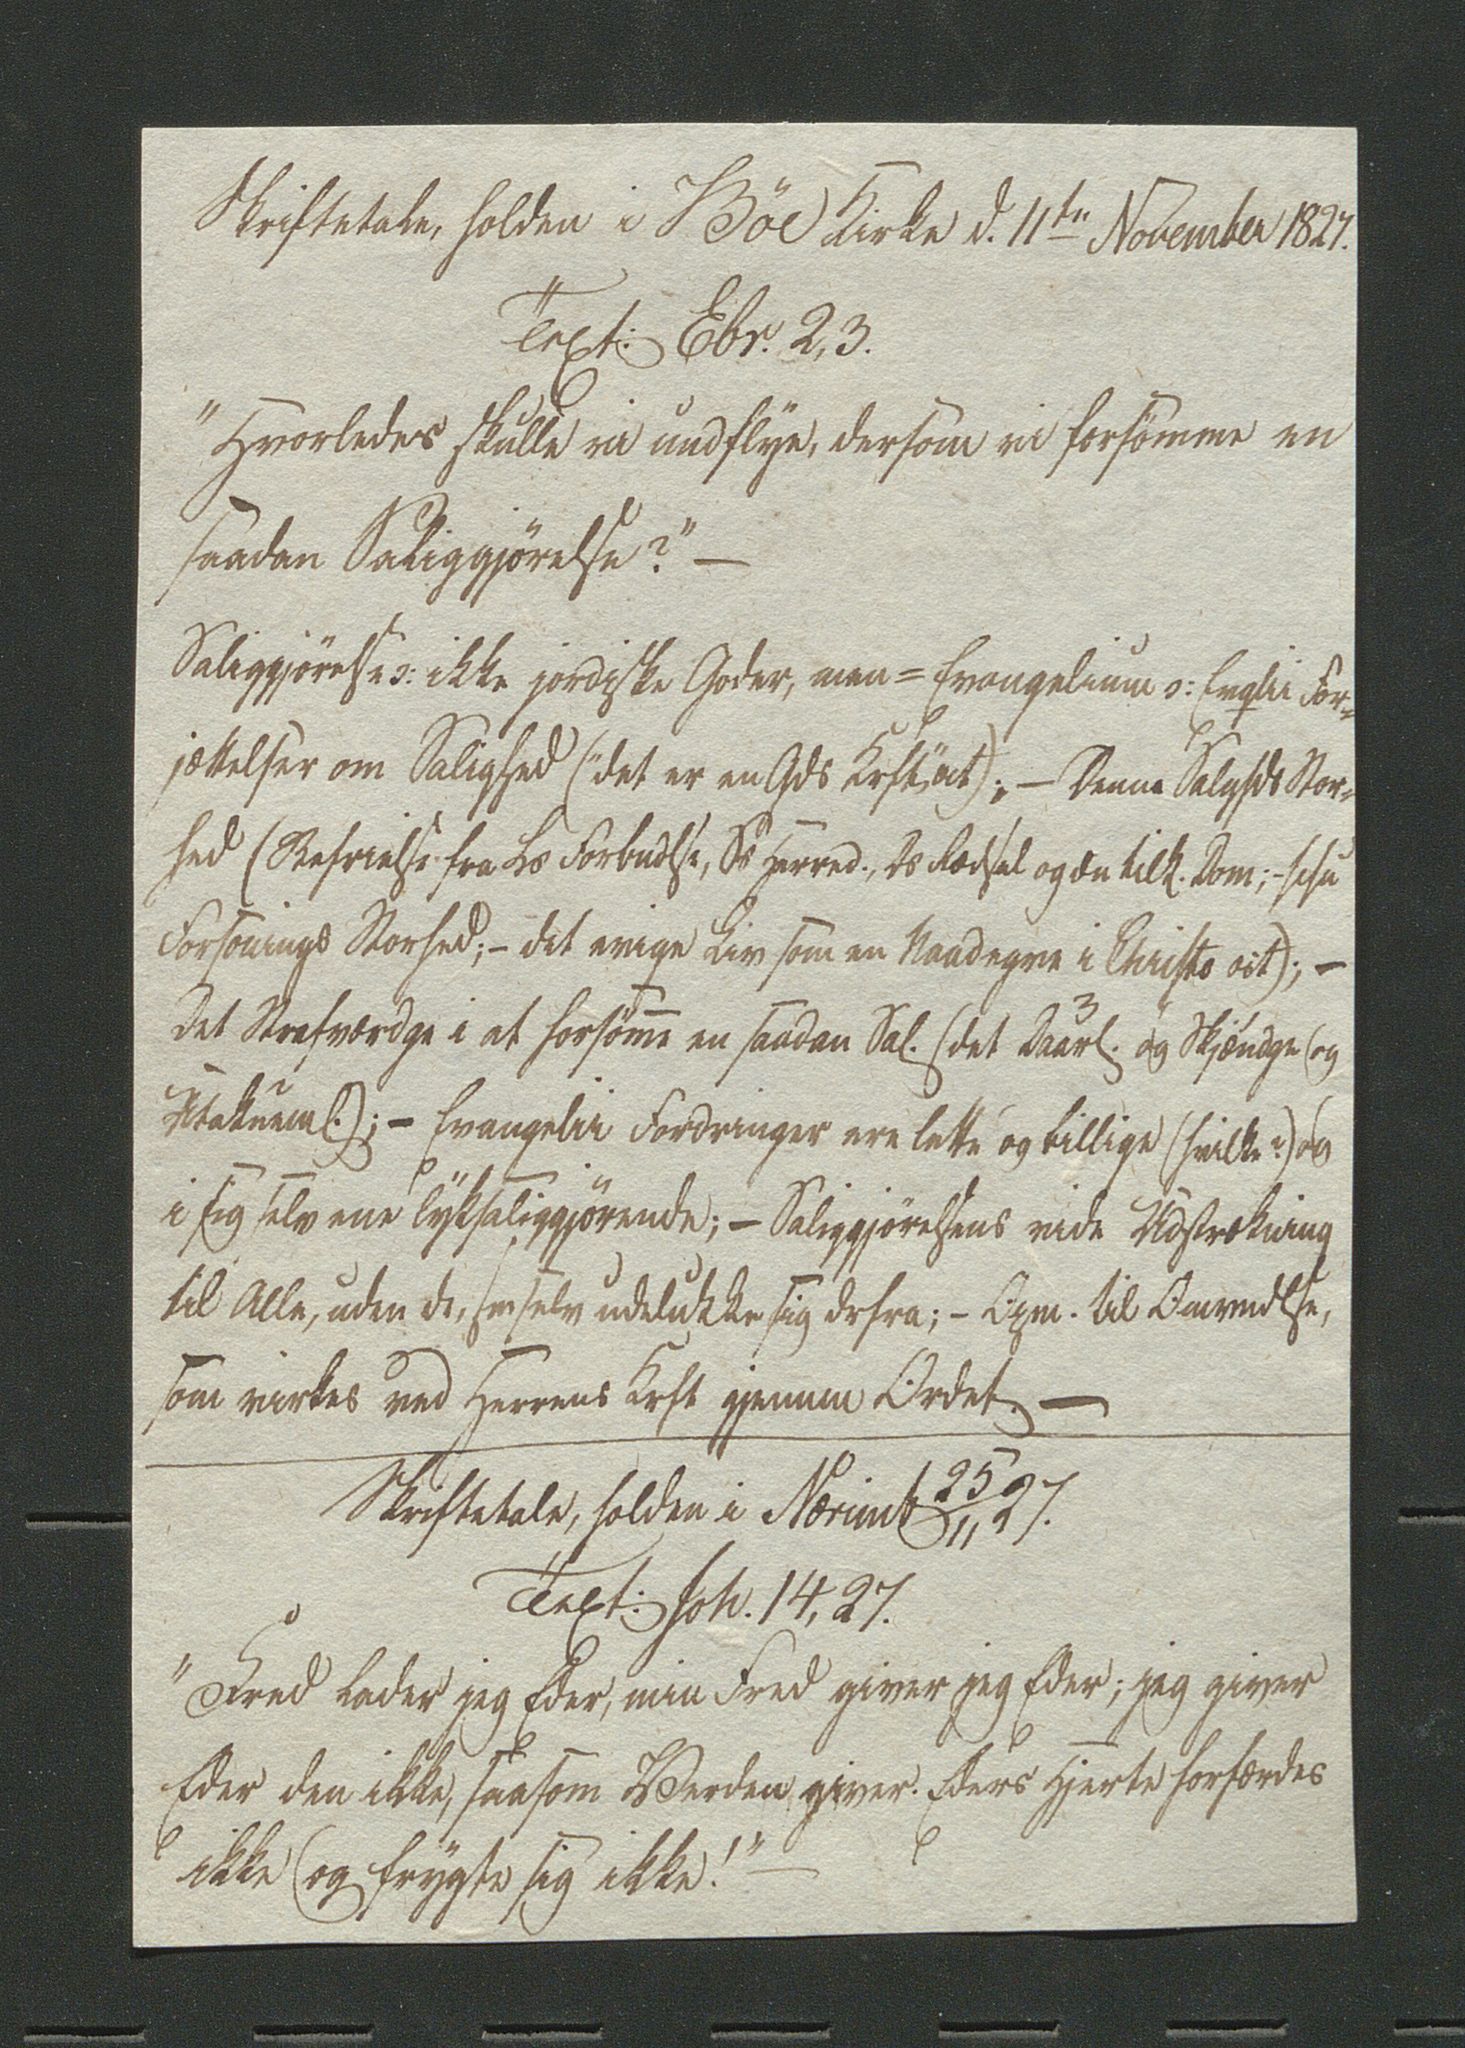 Skriftetale, holden i Böe Kirke d. 11te November 1827.
Text: Ebr. 2, 3.
"Hvorledes skulle vi undflye, dersom vi forsömme en
saadan Saliggjörelse?" —
Saliggjörelse ɔ: ikke jordiske Goder, men = Evangelium ɔ: Englii For-
jættelser om Salighed ("det er en Gds Krft" oct); — Denne Salghds Stor-
hed (Befrielse fra Ls Forbndlse, Ss Herred., Ds Rædsel og den tilk. Dom; -
Forsonings Storhed; - det evige Liv som en Naadegve i Christo oct); —
Det Strafværdge i at forsömme en saadan Sal. (det Daarl. og Skjændge (og
Utakneml.); — Evangelii Fordringer ere lette og billige (hvilke?) og
i sig selv ene lyksaliggjörende; — Saliggjörelsens vide Udstrækning
til Alle, uden de, sm selv udelukke sig drfra; - Opm. til Omvndlse,
som virkes ved Herrens Krft gjennm Ordet. —
Skriftetale, holden i Nærim 25/11 27.
Text: Joh. 14, 27.
"Fred lader jeg Eder, min Fred giver jeg Eder; jeg giver
Eder den ikke, saasom Verden giver. Eders Hjerte forfærdes
ikke og frygte sig ikke!" —